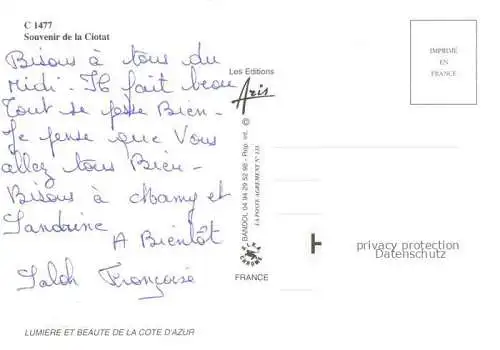 C 1477
Souvenir de la Ciotat
Bisous à tous du
Midi. Il fait beau
Tout se passe Bien -
Je pense que Vous
allez tous Bien -
Bisous à Mamy et
Sandrine
A Bientôt
Françoise
LUMIERE ET BEAUTE DE LA COTE D'AZUR
Les Editions
Aris
BANDOL 04 94 29 52 98 - Rep. int. ©
LA POSTE AGREMENT N° 133
FRANCE
IMPRIMÉ
EN
FRANCE
privacy protection
Datenschutz